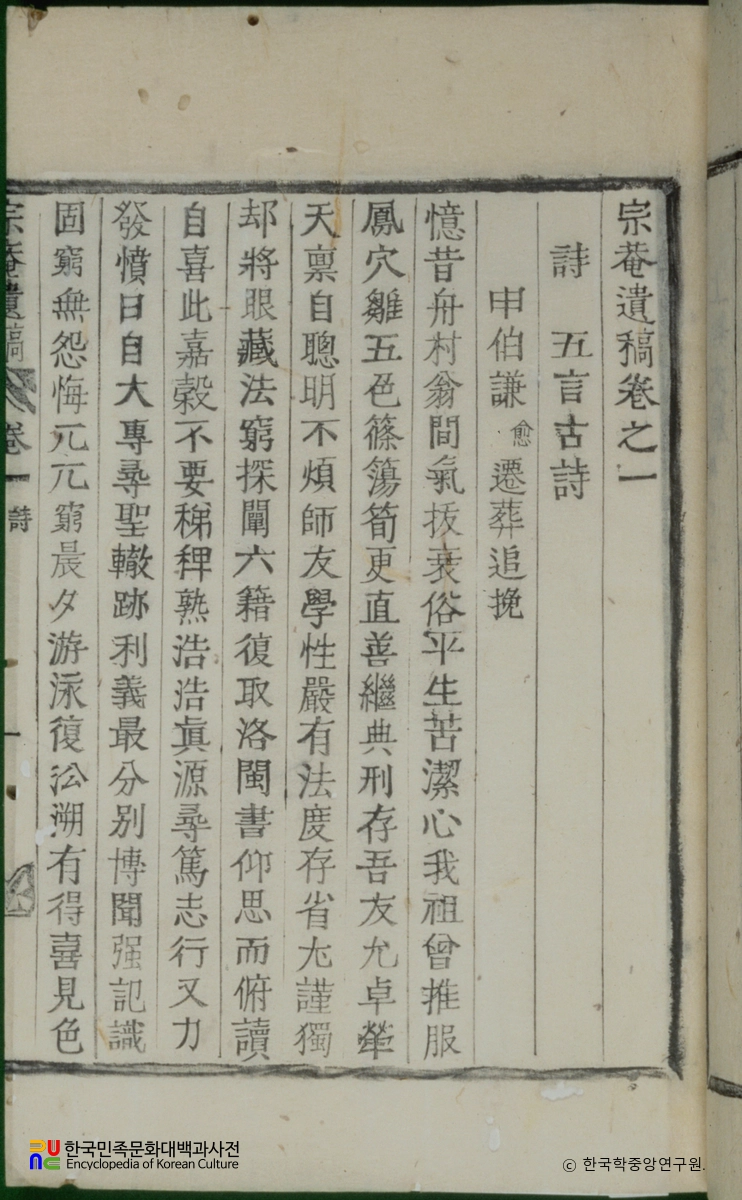 宗菴遺稿卷之一
詩 五言古詩
申伯謙 愈 遷葬追挽
憶昔舟村翁間氣拔衰俗平生苦潔心我祖曾推服
鳳穴雛五色篠簜筍更直善繼典刑存吾友允卓犖
天稟自聰明不煩師友學性嚴有法度存省尤謹獨
却將眼藏法窮探闡六籍復取洛閩書仰思而俯讀
自喜此嘉穀不要稊稗熟浩浩眞源尋篤志行又力
發憤日自大專尋聖轍跡利義最分別博聞强記識
固窮無怨悔兀兀窮晨夕游泳復沿溯有得喜見色
宗菴遺稿 卷一 詩 一
한국민족문화대백과사전
Encyclopedia of Korean Culture
ⓒ 한국학중앙연구원.